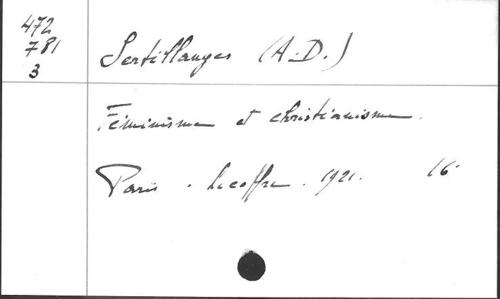 472
781
3
Sertillanges (A.-D.)
Féminisme et christianisme.
Paris. Lecoffre. 1921. 16°